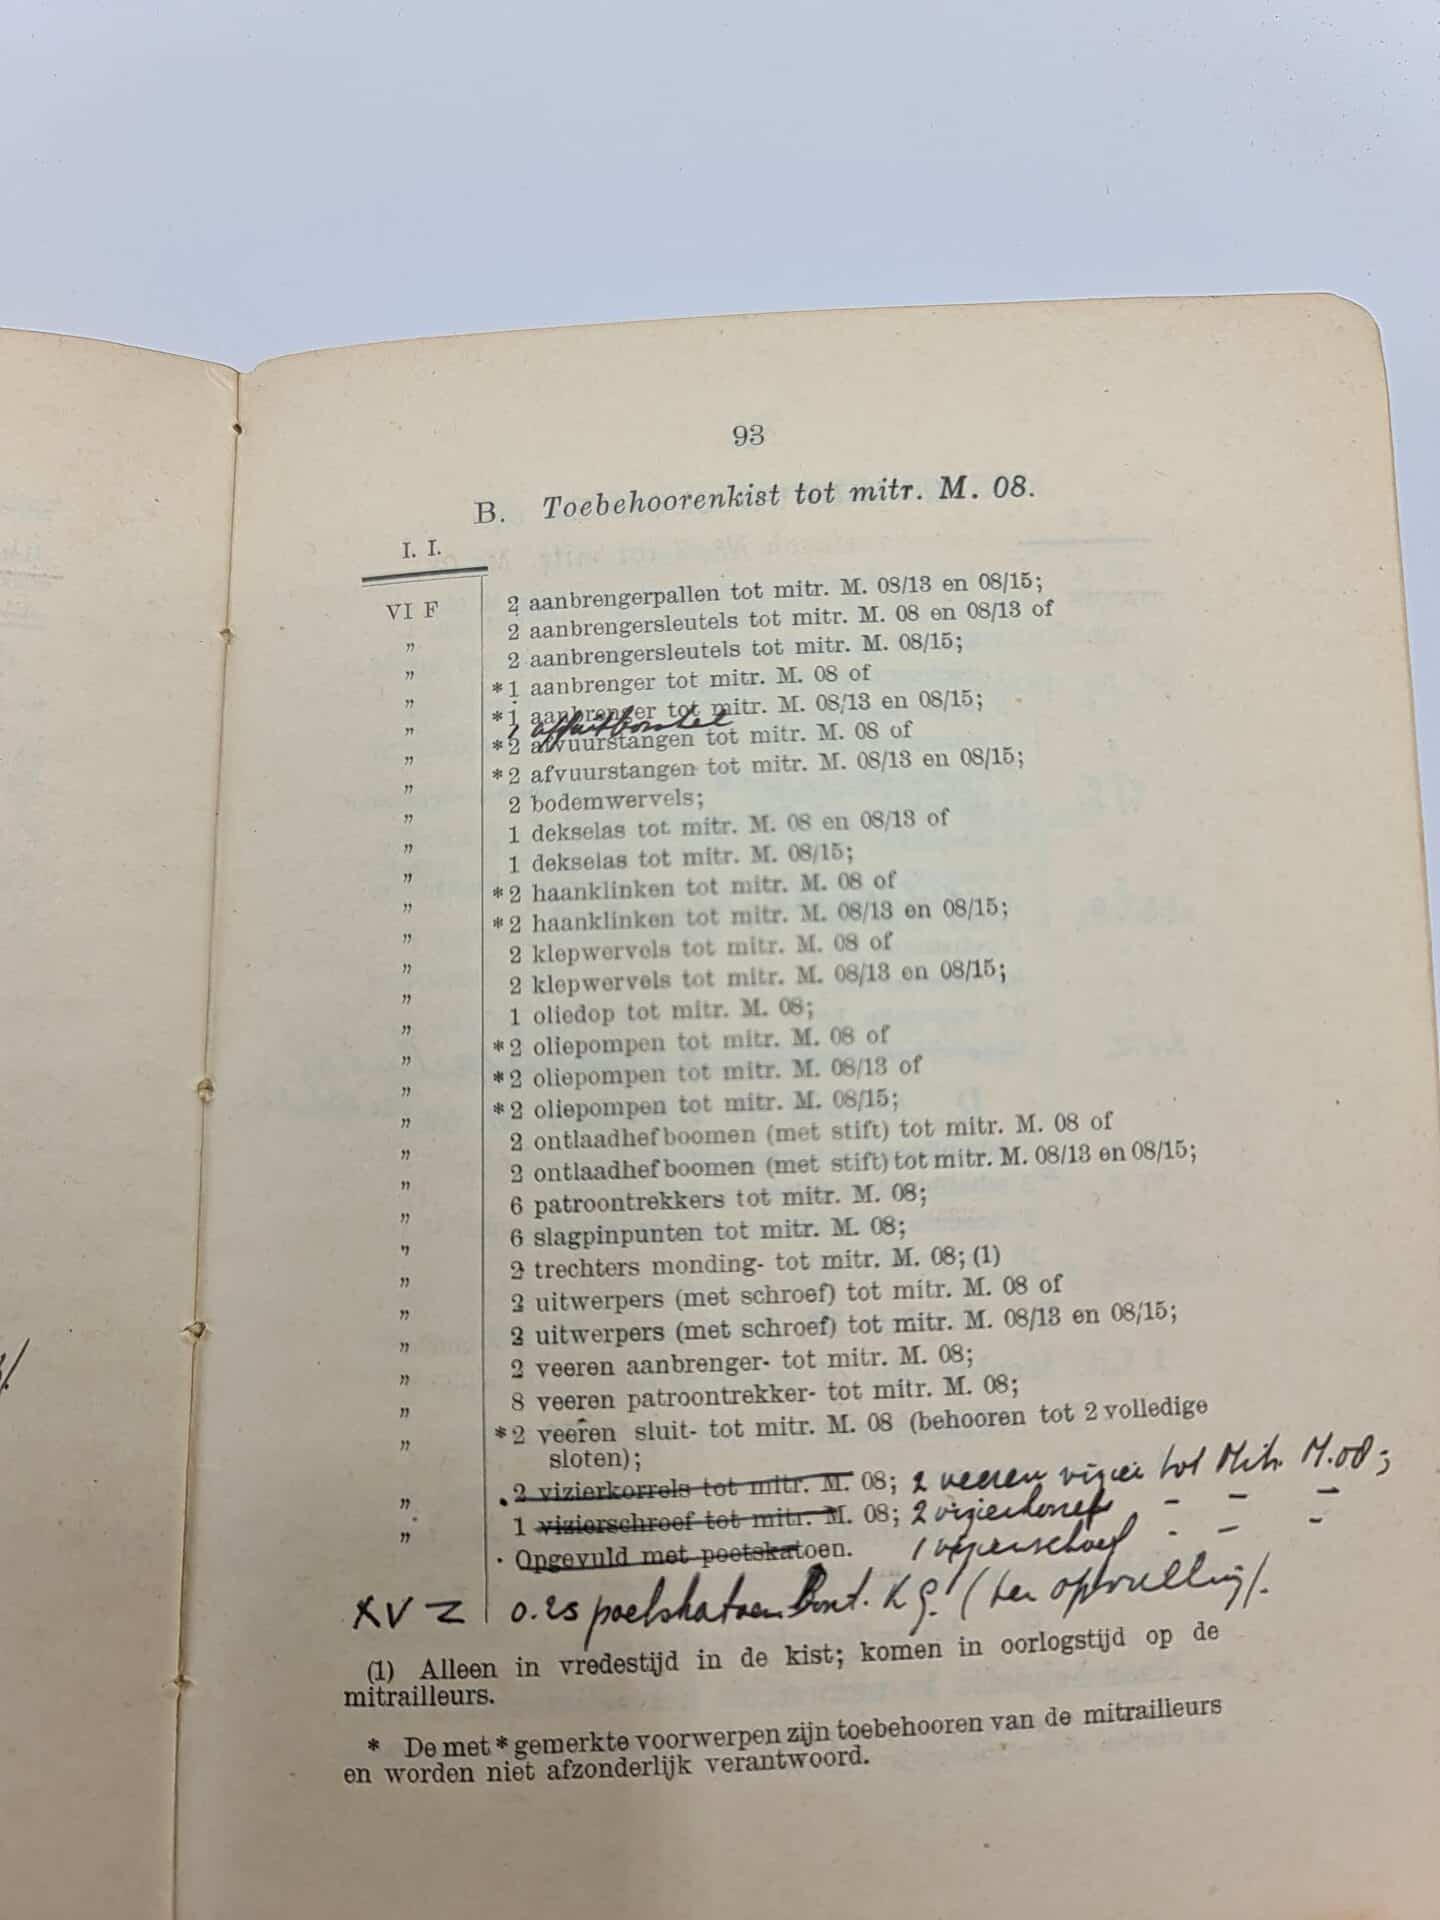 93
B. Toebehoorenkist tot mitr. M. 08.
I. I.
VI F 2 aanbrengerpallen tot mitr. M. 08/13 en 08/15;
„ 2 aanbrengersleutels tot mitr. M. 08 en 08/13 of
„ 2 aanbrengersleutels tot mitr. M. 08/15;
„ *1 aanbrenger tot mitr. M. 08 of
„ *1 aanbrenger tot mitr. M. 08/13 en 08/15;
1 affuitborstel
„ *2 afvuurstangen tot mitr. M. 08 of
„ *2 afvuurstangen tot mitr. M. 08/13 en 08/15;
„ 2 bodemwervels;
„ 1 dekselas tot mitr. M. 08 en 08/13 of
„ 1 dekselas tot mitr. M. 08/15;
„ *2 haanklinken tot mitr. M. 08 of
„ *2 haanklinken tot mitr. M. 08/13 en 08/15;
„ 2 klepwervels tot mitr. M. 08 of
„ 2 klepwervels tot mitr. M. 08/13 en 08/15;
„ 1 oliedop tot mitr. M. 08;
„ *2 oliepompen tot mitr. M. 08 of
„ *2 oliepompen tot mitr. M. 08/13 of
„ *2 oliepompen tot mitr. M. 08/15;
„ 2 ontlaadhefboomen (met stift) tot mitr. M. 08 of
„ 2 ontlaadhefboomen (met stift) tot mitr. M. 08/13 en 08/15;
„ 6 patroontrekkers tot mitr. M. 08;
„ 6 slagpinpunten tot mitr. M. 08;
„ 2 trechters monding- tot mitr. M. 08; (1)
„ 2 uitwerpers (met schroef) tot mitr. M. 08 of
„ 2 uitwerpers (met schroef) tot mitr. M. 08/13 en 08/15;
„ 2 veeren aanbrenger- tot mitr. M. 08;
„ 8 veeren patroontrekker- tot mitr. M. 08;
„ *2 veeren sluit- tot mitr. M. 08 (behooren tot 2 volledige
sloten);
„ 2 vizierkorrels tot mitr. M. 08; 2 veeren vizier tot Mitr. M.08;
„ 1 vizierschroef tot mitr. M. 08; 2 vizierkorrels - - -
Opgevuld met poetskatoen. 1 vizierschroef - - -
XV Z 0.25 poetskatoen bont. KG. (ter opvulling).
(1) Alleen in vredestijd in de kist; komen in oorlogstijd op de
mitrailleurs.
* De met * gemerkte voorwerpen zijn toebehooren van de mitrailleurs
en worden niet afzonderlijk verantwoord.